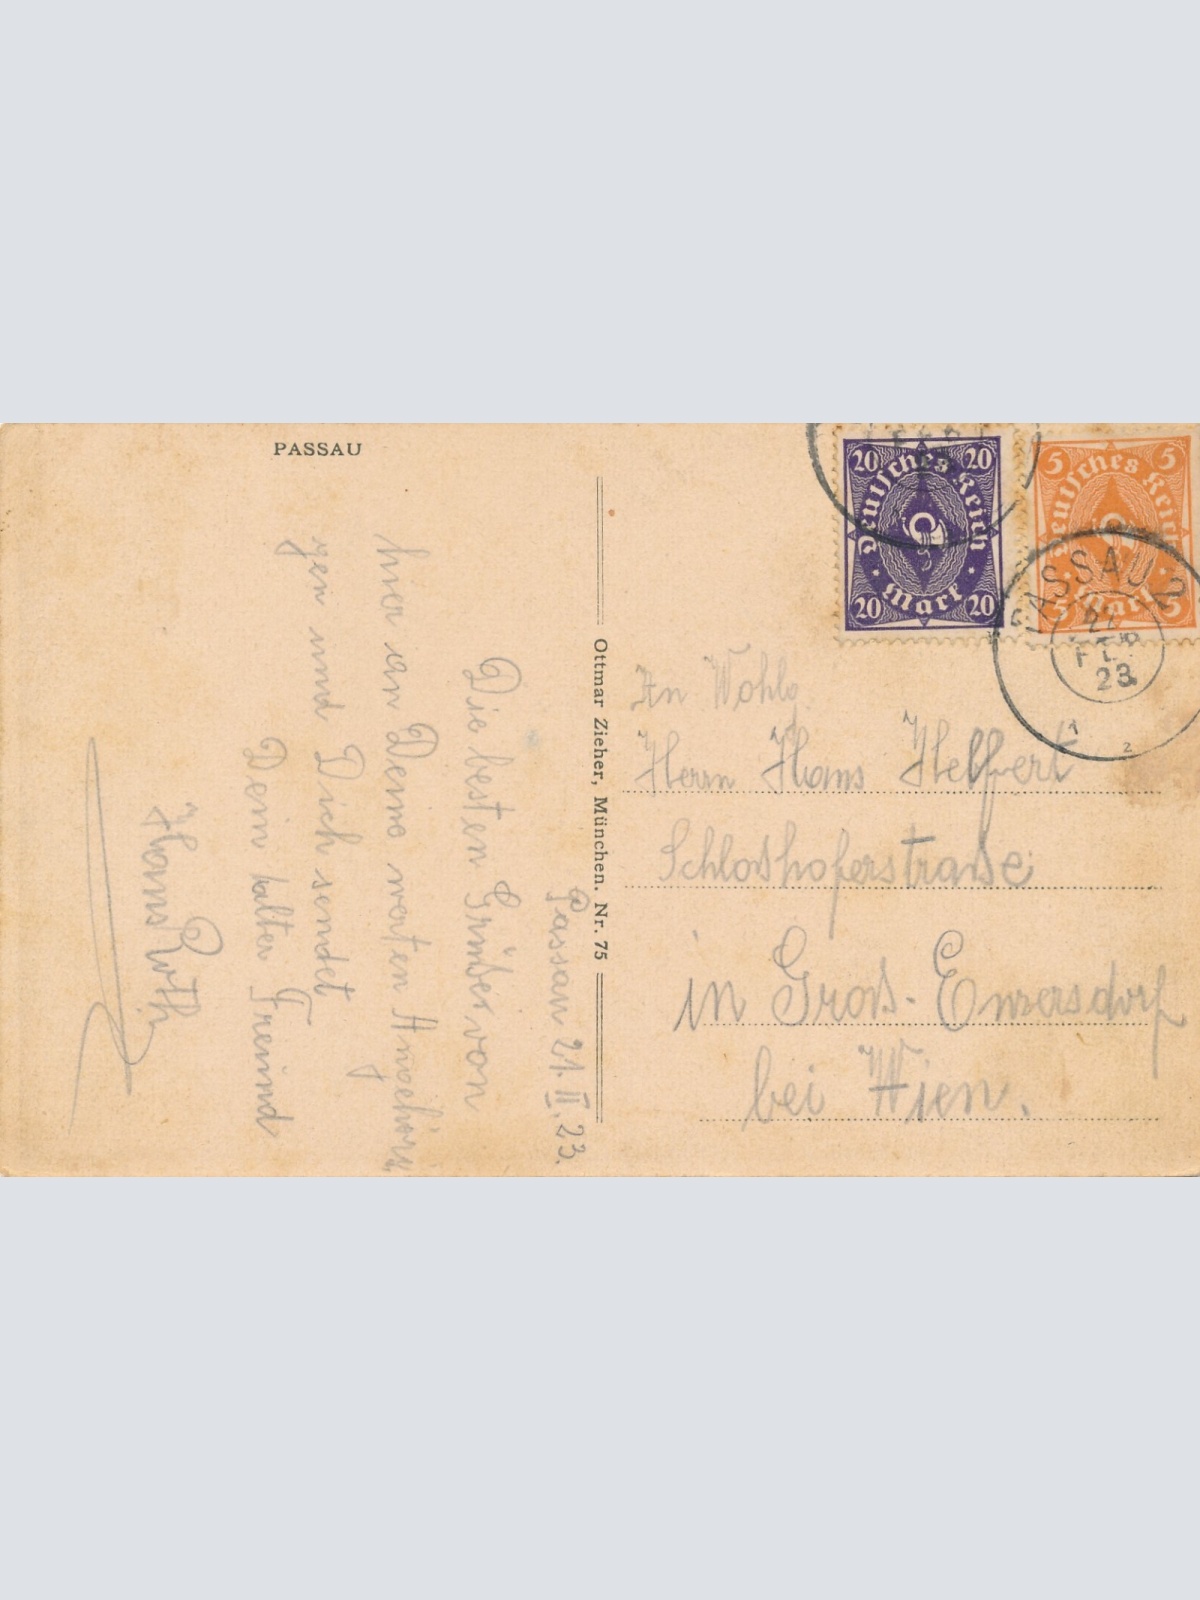 PASSAU
Passau 21. II. 23.
Die besten Grüße von
hier an Deine werten Angehöri
gen und Dich sendet
Dein alter Freund
Hans Roth
Ottmar Zieher, München. Nr. 75
20 20
Deutsches Reich
20 Mark 20
5 5
Deutsches Reich
5 Mark 5
PASSAU 2
21.
FEB
23
1 2
An Wohlg.
Herrn Hans Helfert
Schloßhoferstraße
in Groß-Enzersdorf
bei Wien.